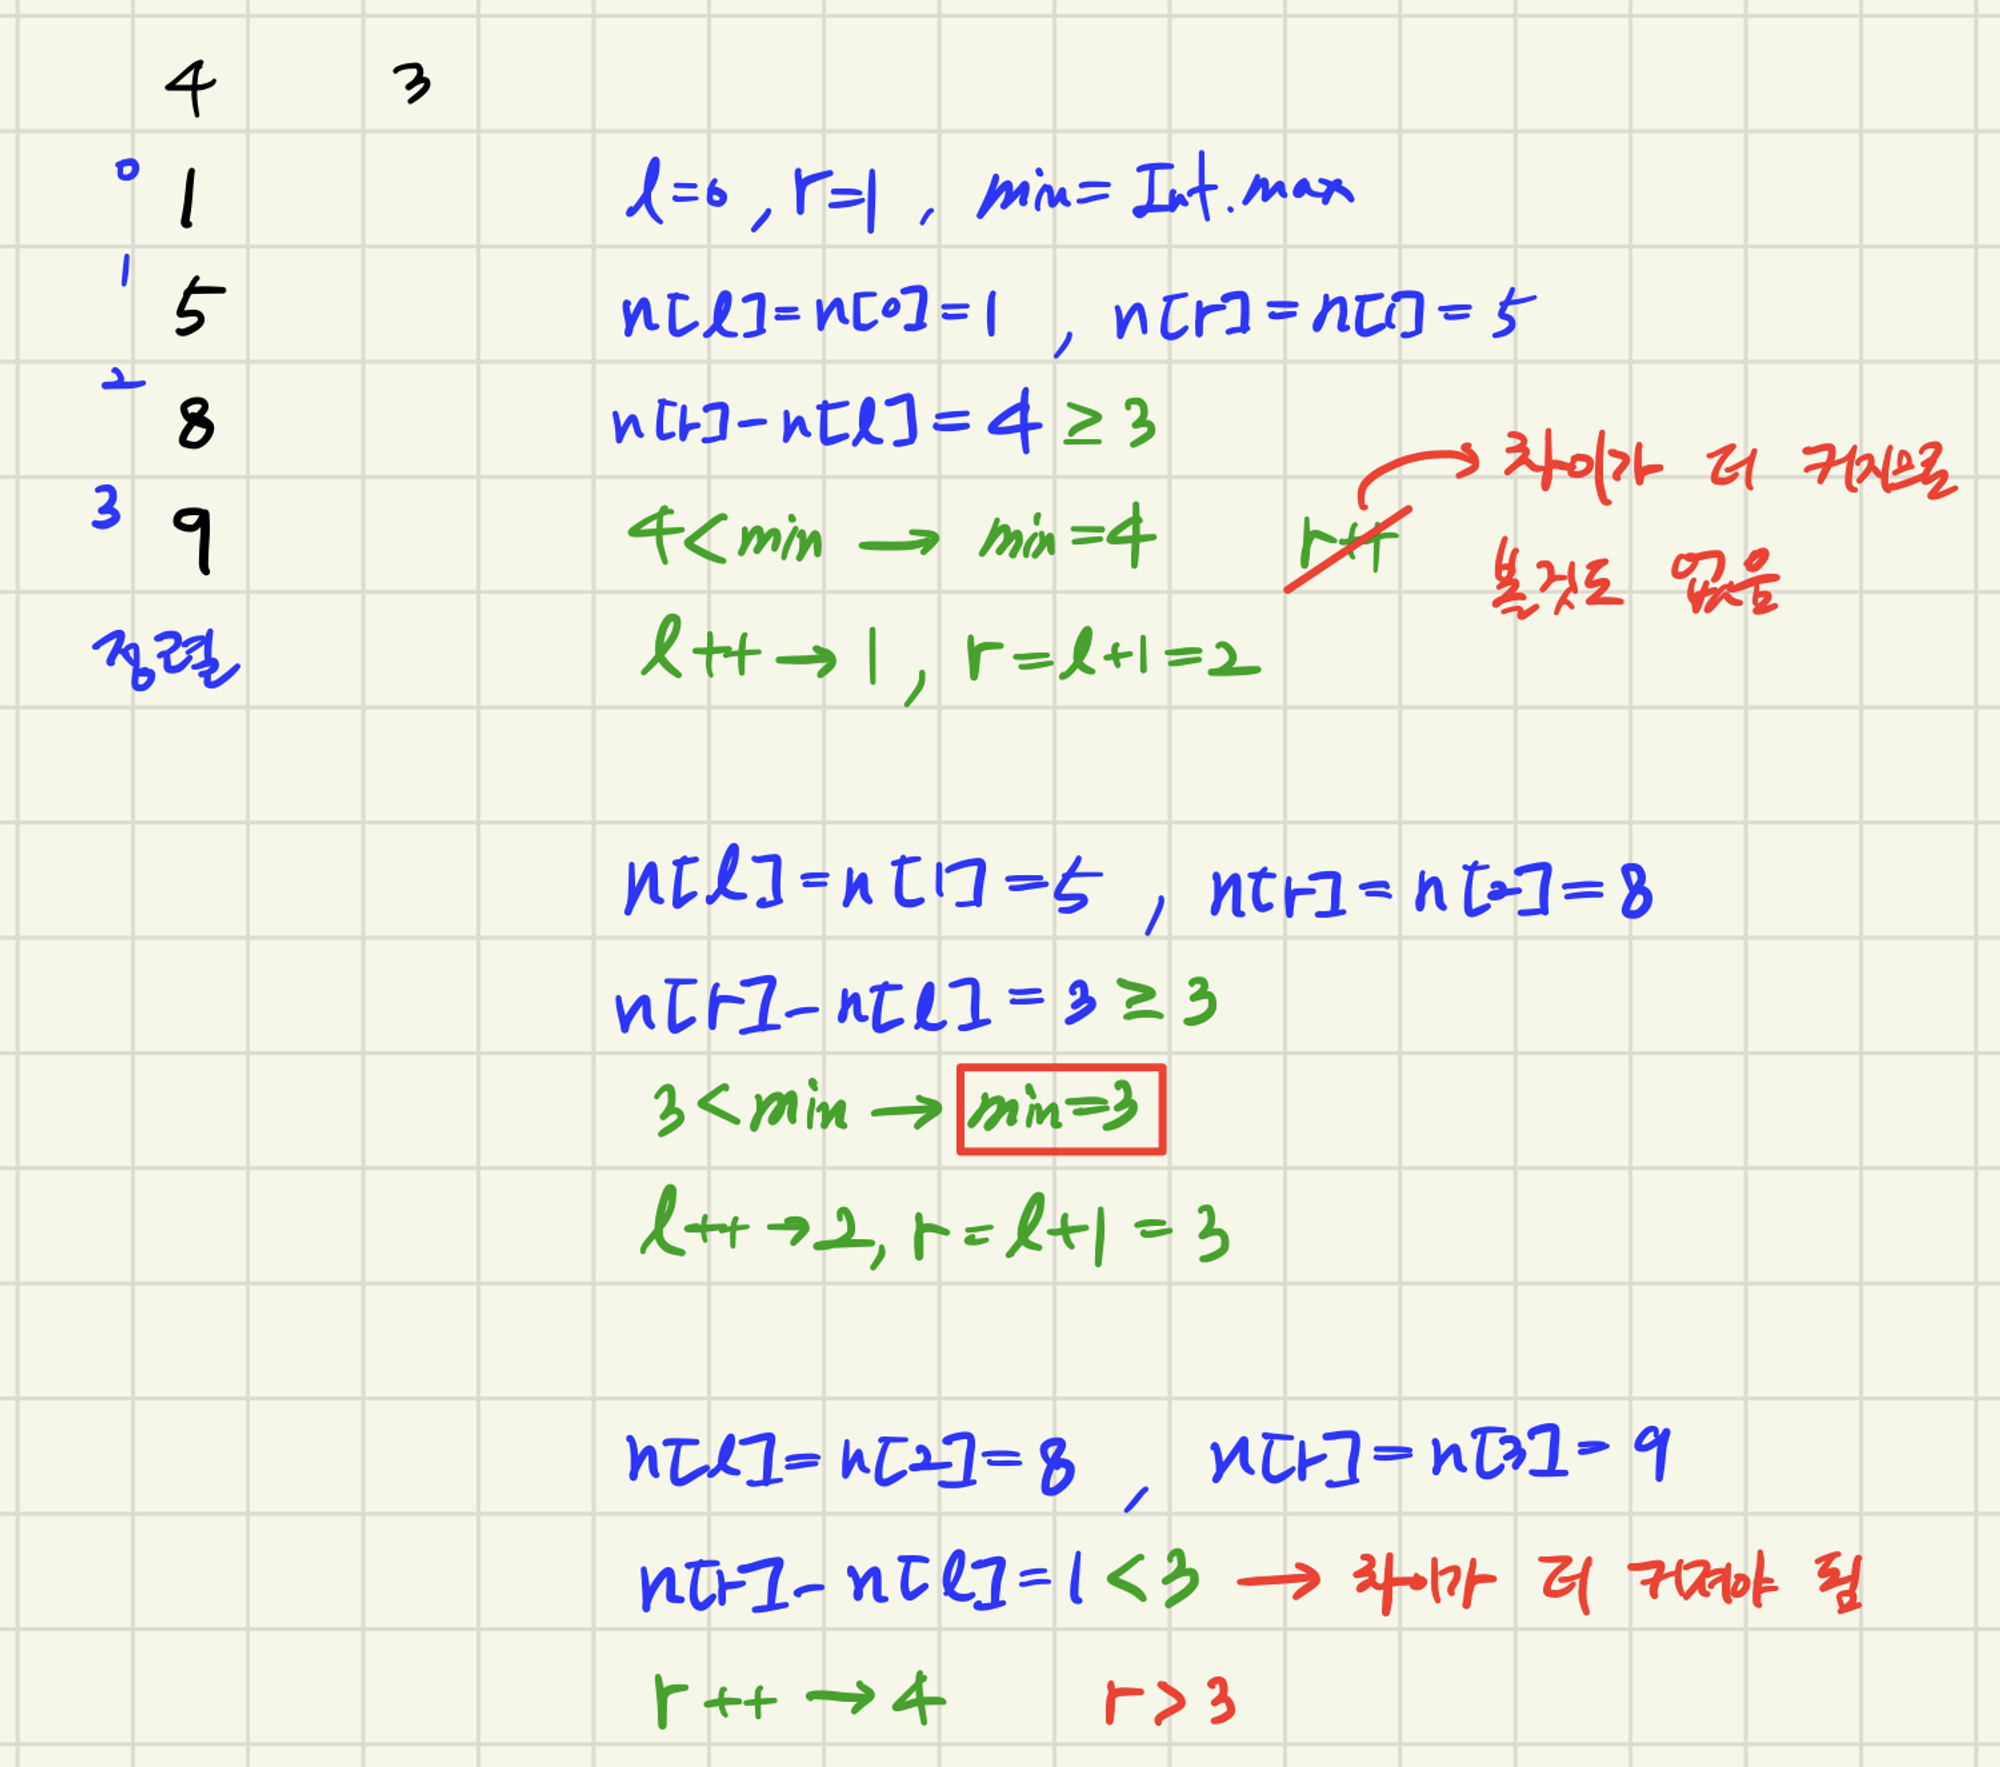 4 3
0 1
l=0, r=1, min=Int.max
1 5
n[l]=n[0]=1, n[r]=n[1]=5
2 8
n[r]-n[l]=4 ≥ 3
3 9
4<min → min=4 r++ → 차이가 더 커지므로
볼 것도 없음
정렬됨
l++ → 1, r=l+1=2
n[l]=n[1]=5, n[r]=n[2]=8
n[r]-n[l]=3 ≥ 3
3<min → min=3
l++ → 2, r=l+1=3
n[l]=n[2]=8, n[r]=n[3]=9
n[r]-n[l]=1 < 3 → 차이가 더 커져야 됨
r++ → 4 r>3